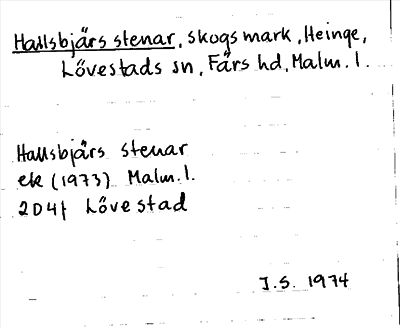 Hallsbjärs stenar, skogsmark, Heinge,
Lövestads sn, Färs hd, Malm. l.
Hallsbjärs stenar
ek (1973) Malm. l.
2D4f Lövestad
J.S. 1974